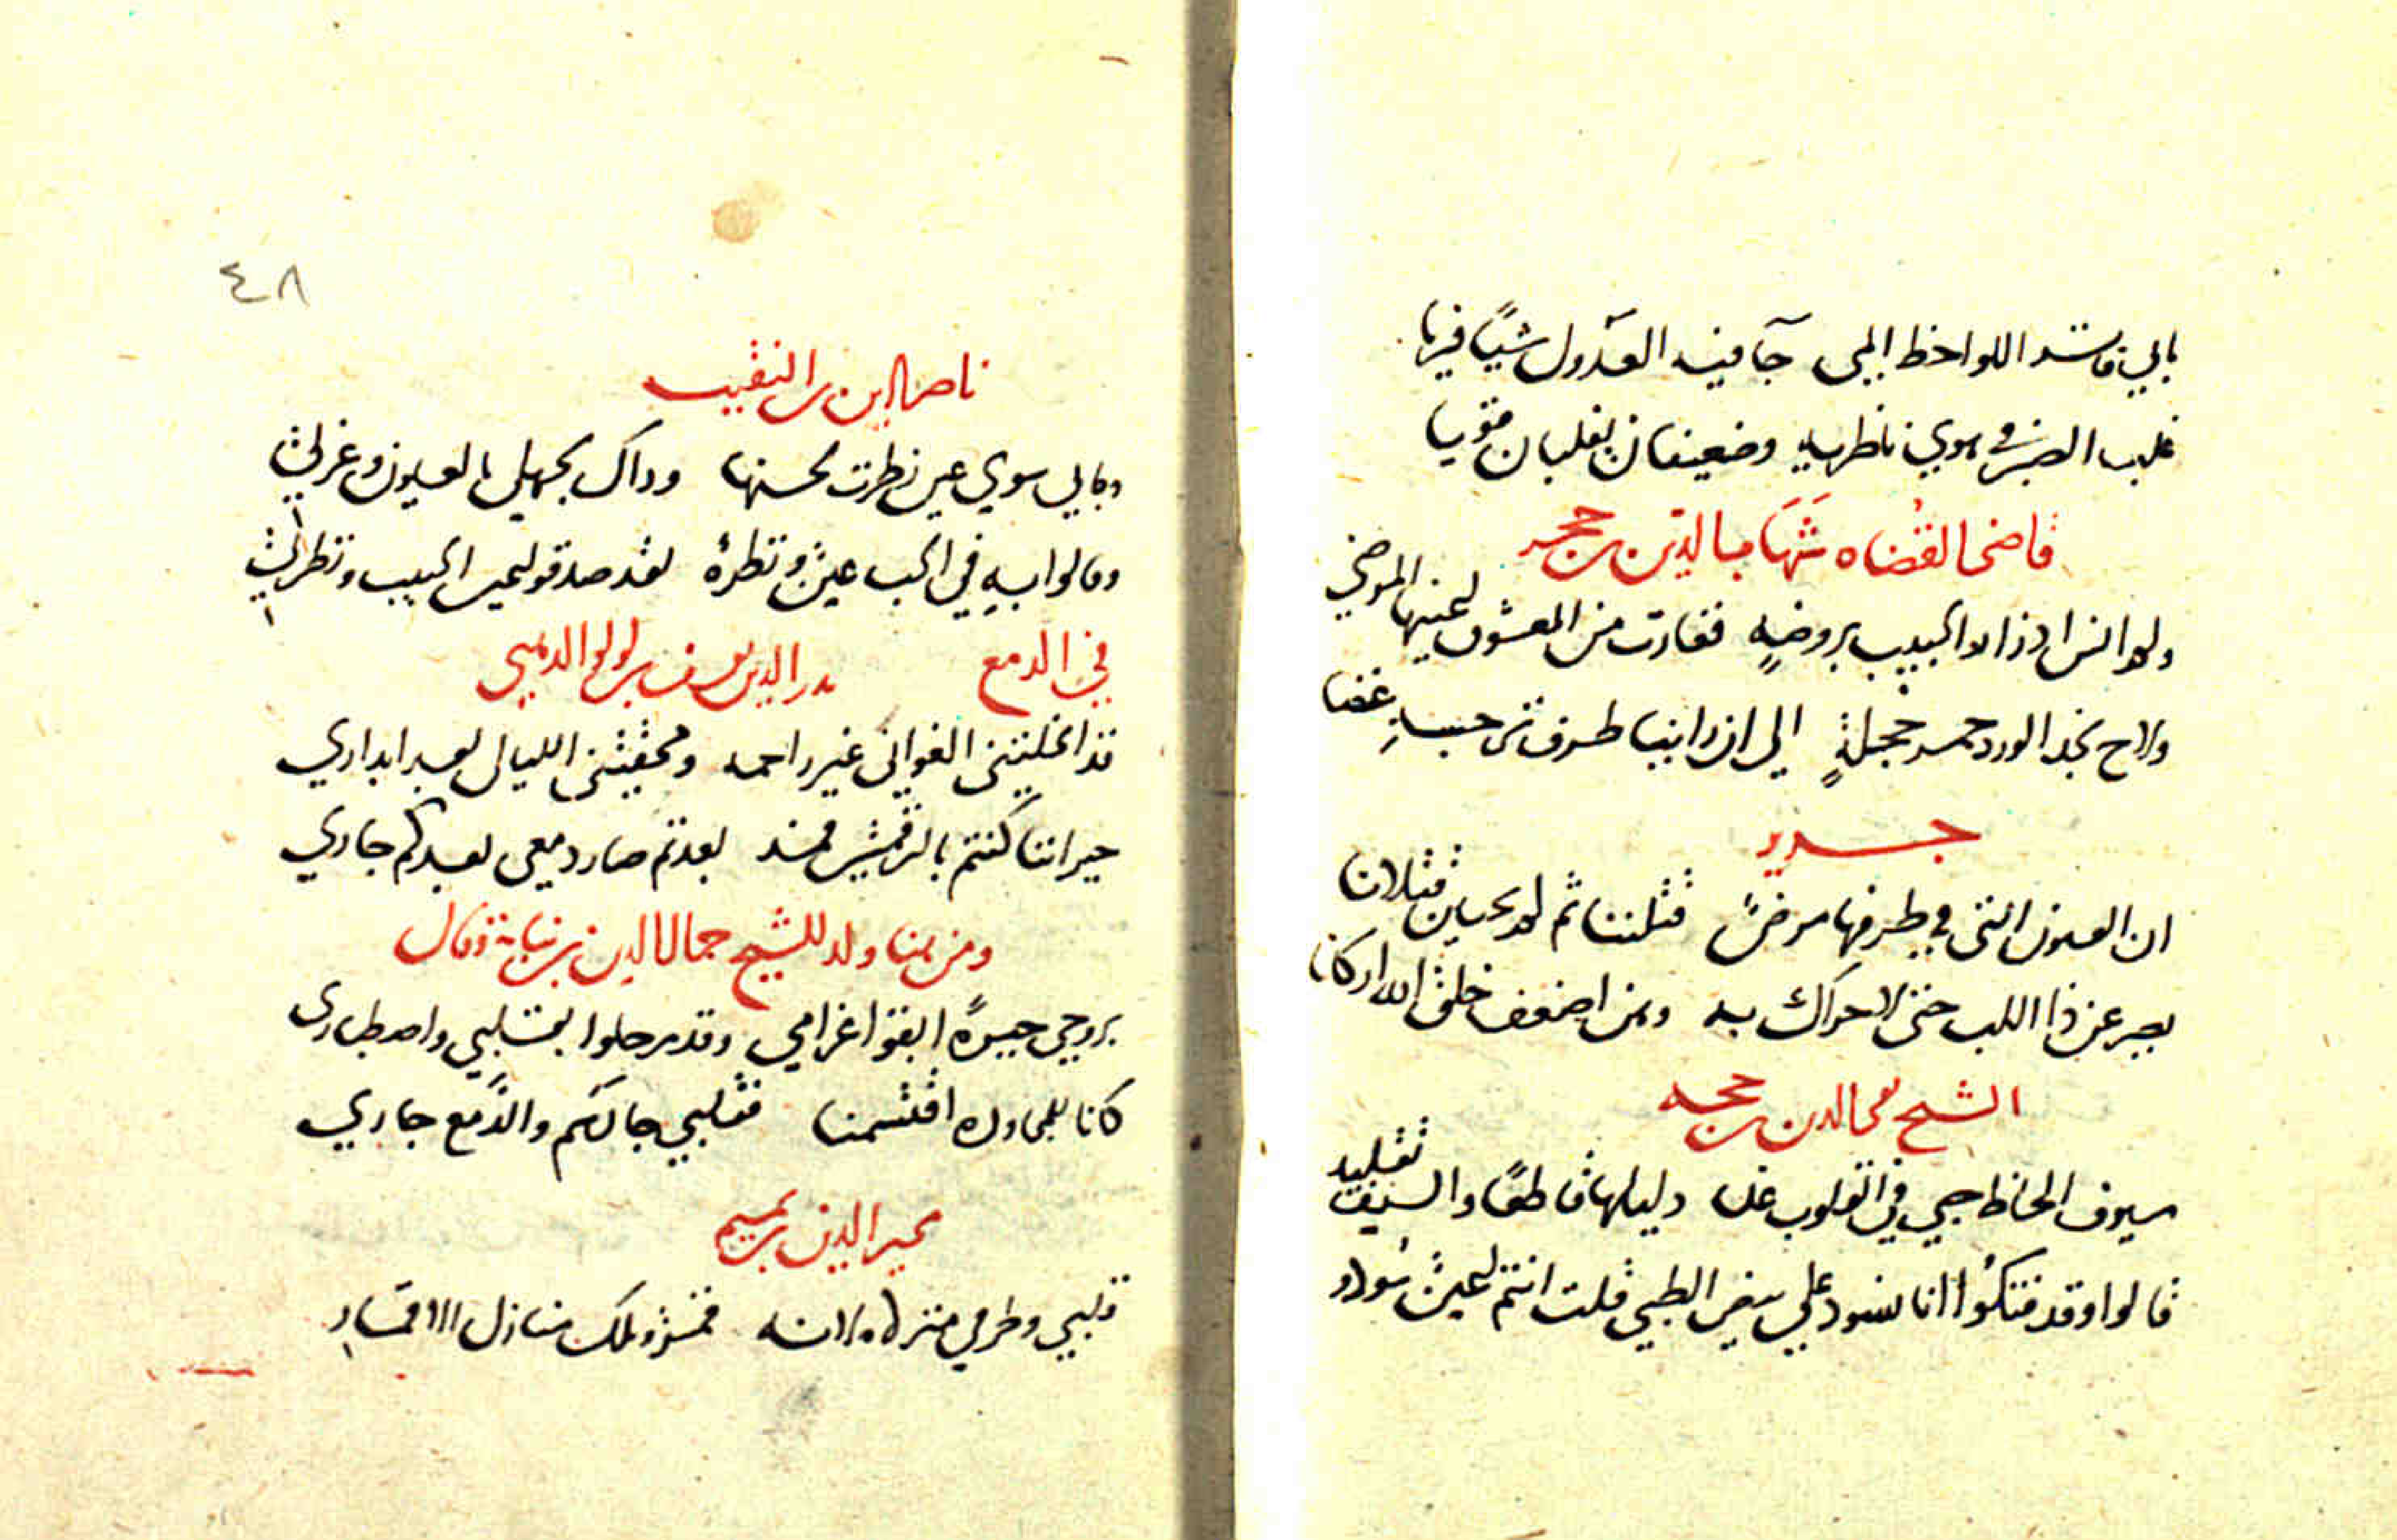 بابي فاتر اللواحظ المي جا فيه العذول شيا فريا
غلب الصبر في هوي ناظريه وضعيفان يغلبان قويا
قاضي القضاه شهاب الدين بن حجر
ولم انس اذ زار الحبيب بروضة فغارت من المعشوق لعينها المرضي
ولاح بخد الورد حمر خجلة الي ان راينا طرف نرجسه غضا
جرير
ان العيون التي في طرفها مرض قتلننا ثم لم يحيين قتلانا
يصرعن ذا اللب حتي لا حراك به وهن اضعف خلق الله اركانا
الشيخ تقي الدين بن حجه
سيوف الحاظ حبي في القلوب غدا دليلها قاطعا والسيف تقليد
قالوا وقد فتكوا انا نسود علي بيض الظبي قلت انتم لعين سود
٤٨
ناصر الدين بن النقيب
وما بي سوي عين نظرت لحسنها وداك لجهلي بالعيون وغرتي
وقالوا به في الحب عين ونظرة لقد صدقوا عين الحبيب ونظرتي
في الدمع بدر الدين يوسف بن لولو الدهبي
الغواني غير راحمه الليالي بعد ابداري
جيراننا كنتم بالرقمتين فمذ بعدتم صار دمعي بعدكم جاري
ومن هنا ولد للشيخ جمال الدين بن نباتة وقال
بروحي جيرة ابقوا غرامي وقد رحلوا بقلبي واصطباري
كانا للمجاوره اقتسمنا فقلبي جاركم والدمع جاري
مجير الدين بن تميم
قلبي وطرفي منزلاه لانه قمر وتلك منازل الاقمار